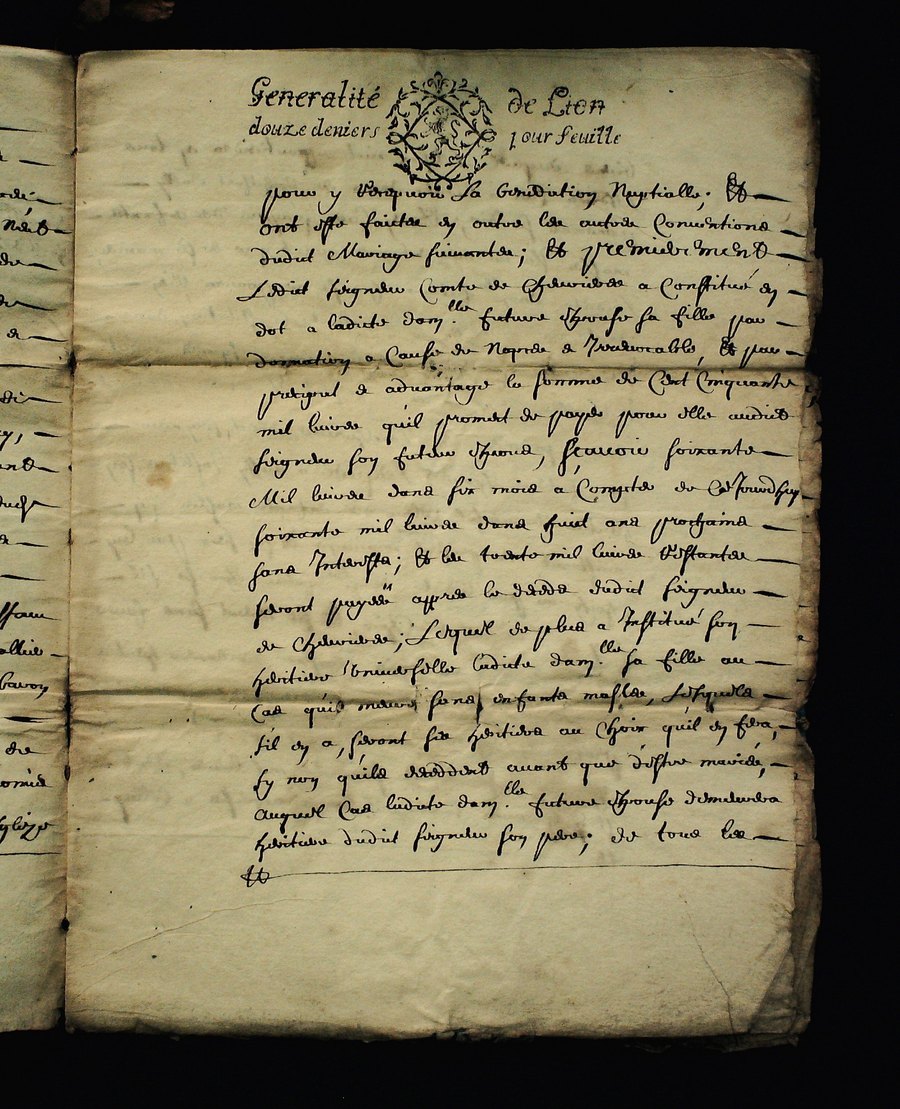 Generalité de Lion
douze deniers pour feuille
pour y recepvoir La Benediction Nuptialle; Et
ont esté faictes en outre les autres Conventions
dudict Mariage suivantes; Et premierement
Ledict seigneur Comte de Chevrieres a Constitué en
dot a ladicte dam.lle future Espouse sa fille par
donnation a Cause de Nopces et Irrevocable, Et par
preciput et advantage la somme de Cent Cinquante
mil livres qu'il promect de payer pour elle audict
seigneur son futur Espoux, sçavoir soixante
Mil livres dans six mois a Compter de Cejourdhuy
soixante mil livres dans huict ans prochains
sans Interests; Et les trente mil livres restantes
seront payées appres le decedz dudict seigneur
de Chevrieres; Lequel de plus a Institué son
heritiere Universelle ladicte dam.lle sa fille au
Cas qu'il meure sans enfants masles, Lesquels
s'il en a, seront ses heritiers au Choix qu'il en fera,
sy non qu'ils deceddent avant que d'estre mariés,
auquel Cas ladicte dam.lle future Espouse demeurera
heritiere dudict seigneur son pere; de tous les
Et